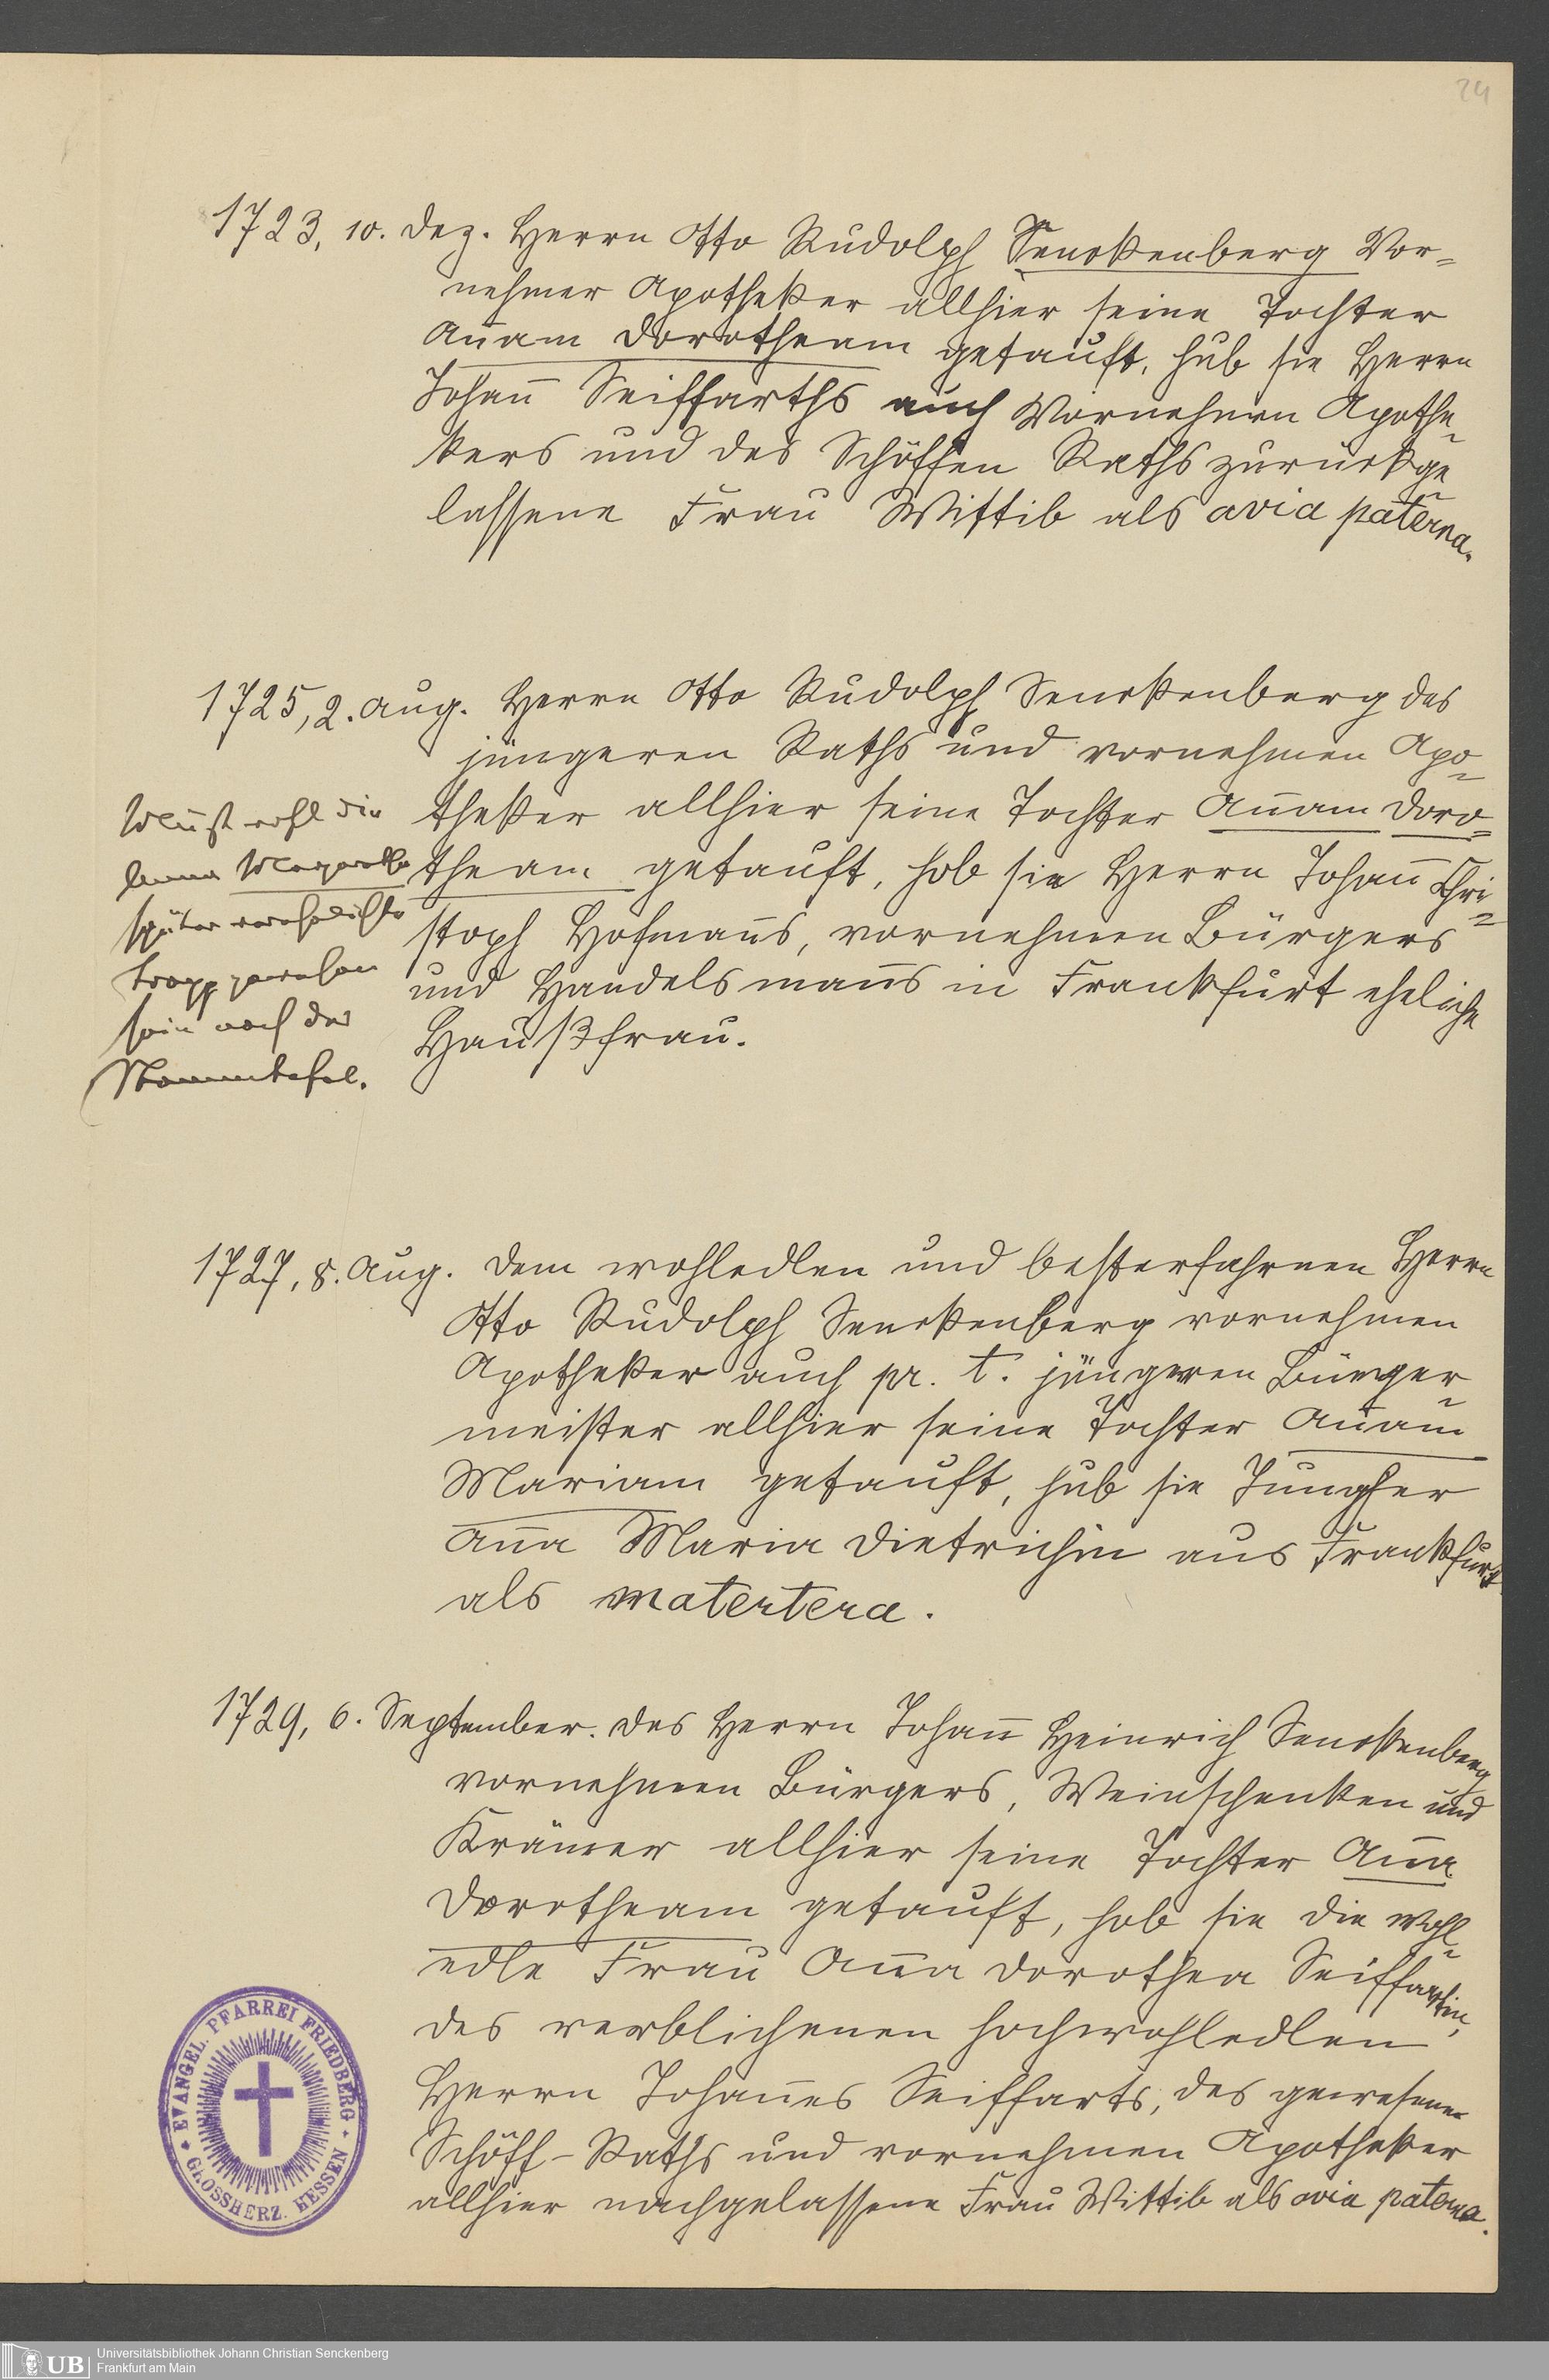 24
1723, 10. Dez. Herrn Otto Rudolph Senckenberg Vor=
nehmer Apotheker allhier seine Tochter
Añam Dorotheam getauft, hub sie Herrn
Johañ Seiffarths auch Vornehmen Apothe=
kers und des Schöffen Raths zurückge=
lassene Frau Wittib als avia paterna.
1725, 2. Aug. Herrn Otto Rudolph Senckenberg des
jüngeren Raths und vornehmen Apo=
theker allhier seine Tochter Añam Doro=
theam getauft, hob sie Herrn Johañ Chri=
stoph Hofmañs, vornehmen Bürgers
und Handelsmañs in Frankfurt eheliche
Haußfrau.
Muß wohl die
Anna Margaretha
später verehelichte
Trapp gewesen
sein nach der
Stammtafel.
1727, 8. Aug. Dem wohledlen und besterfahrnen Herrn
Otto Rudolph Senckenberg vornehmen
Apotheker auch pr. t. jüngeren Bürger=
meister allhier seine Tochter Añam
Mariam getauft, hub sie Jungfer
Aña Maria Dietrichin aus Frankfurt
als matertera.
1729, 6. September. Des Herrn Johañ Heinrich Senckenberg
vornehmen Bürgers, Weinschenken und
Krämer allhier seine Tochter Aña
Dorotheam getauft, hob sie die Wohl=
edle Frau Aña Dorothea Seiffartin,
des verblichenen hochwohledlen
Herrn Johañes Seiffarts, des gewesenen
Schöff-Raths und vornehmen Apotheker
allhier nachgelassene Frau Wittib als avia paterna.
EVANGEL. PFARREI FRIEDBERG
GROSSHERZ. HESSEN
UB Universitätsbibliothek Johann Christian Senckenberg
Frankfurt am Main